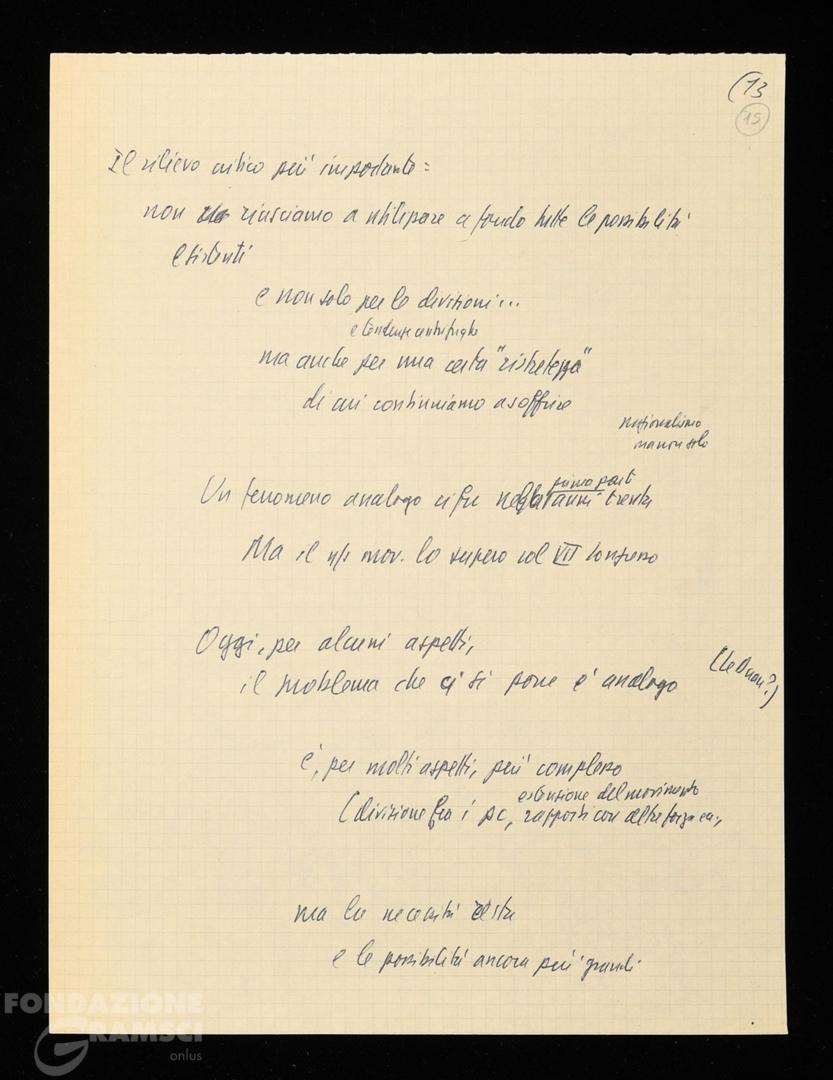 (13
15
Il rilievo critico più importante:
non riusciamo a utilizzare a fondo tutte le possibilità
esistenti
e non solo per le divisioni...
e tendenze centrifughe
ma anche per una certa "ristrettezza"
di cui continuiamo a soffrire
nazionalismo
ma non solo
prima parte
Un fenomeno analogo ci fu anni trenta
Ma il n/s mov. lo superò col VII Congresso
Oggi, per alcuni aspetti,
(Le Duan?)
il problema che ci si pone è analogo
È, per molti aspetti, più complesso
estensione del movimento
(divisione fra i pc, rapporti con altre forze ecc.,
ma la necessità esiste
e le possibilità ancora più grandi
FONDAZIONE
GRAMSCI
onlus